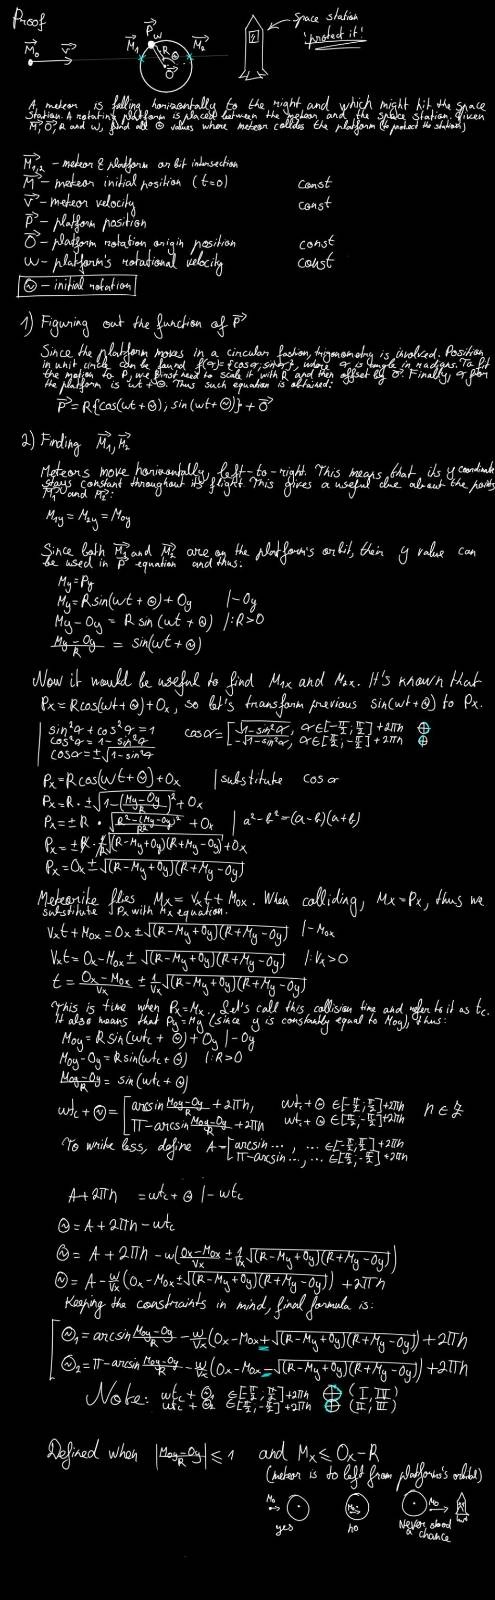 Proof
M₀ V M₁ P W R Θ O M₂
Space station
"protect it!"
A meteor is falling horizontally to the right and which might hit the space
station. A rotating platform is placed between the meteor and the space station. Given
M, O, R and W, find all Θ values where meteor collides the platform (to protect the station)
M₁,₂ – meteor & platform orbit intersection
M – meteor initial position (t=0) const
V – meteor velocity const
P – platform position
O – platform rotation origin position const
W – platform's rotational velocity const
Θ – initial rotation
1) Figuring out the function of P
Since the platform moves in a circular fashion, trigonometry is involved. Position
in unit circle can be found f(α)={cosα; sinα}, where α is angle in radians. To fit
the motion to P, we first need to scale it with R and then offset by O. Finally, α for
the platform is wt+Θ. Thus such equation is obtained:
P=R{cos(wt+Θ); sin(wt+Θ)}+O
2) Finding M₁, M₂
Meteors move horizontally, left-to-right. This means that its y coordinate
stays constant throughout its flight. This gives a useful clue about the points
M₁ and M₂:
M₁y=M₂y=M₀y
Since both M₁ and M₂ are on the platform's orbit, their y value can
be used in P equation and thus:
My=Py
My=Rsin(wt+Θ)+Oy |-Oy
My-Oy = R sin (wt+Θ) |:R>0
(My-Oy)/R = sin(wt+Θ)
Now it would be useful to find M₁x and M₂x. It's known that
Px=Rcos(wt+Θ)+Ox, so let's transform previous sin(wt+Θ) to Px.
sin²α+cos²α=1 cosα=[√(1-sin²α), α∈[-π/2; π/2]+2πn
cos²α=1-sin²α -√(1-sin²α), α∈[π/2; -π/2]+2πn
cosα=±√(1-sin²α)
Px=Rcos(wt+Θ)+Ox |substitute cosα
Px=R·±√(1-((My-Oy)/R)²)+Ox
Px=±R·√((R²-(My-Oy)²)/R²)+Ox | a²-b²=(a-b)(a+b)
Px=±R·1/R√((R-My+Oy)(R+My-Oy))+Ox
Px=Ox±√((R-My+Oy)(R+My-Oy))
Meteorite flies Mx=Vxt+M₀x. When colliding, Mx=Px, thus we
substitute Px with Mx equation.
Vxt+M₀x=Ox±√((R-My+Oy)(R+My-Oy)) |-M₀x
Vxt=Ox-M₀x±√((R-My+Oy)(R+My-Oy)) |:Vx>0
t=(Ox-M₀x)/Vx ± 1/Vx√((R-My+Oy)(R+My-Oy))
This is time when Px=Mx. Let's call this collision time and refer to it as tc.
It also means that Py=My (since y is constantly equal to M₀y), thus:
M₀y=Rsin(wtc+Θ)+Oy |-Oy
M₀y-Oy=Rsin(wtc+Θ) |:R>0
(M₀y-Oy)/R = sin(wtc+Θ)
wtc+Θ=[arcsin (M₀y-Oy)/R +2πn, wtc+Θ∈[-π/2; π/2]+2πn n∈Z
π-arcsin (M₀y-Oy)/R +2πn wtc+Θ∈[π/2; -π/2]+2πn
To write less, define A=[arcsin..., ...∈[-π/2; π/2]+2πn
π-arcsin..., ...∈[π/2; -π/2]+2πn
A+2πn =wtc+Θ |-wtc
Θ=A+2πn-wtc
Θ= A+2πn-w((Ox-M₀x)/Vx ± 1/Vx√((R-My+Oy)(R+My-Oy)))
Θ=A-w/Vx(Ox-M₀x±√((R-My+Oy)(R+My-Oy))) +2πn
Keeping the constraints in mind, final formula is:
Θ₁=arcsin (M₀y-Oy)/R - w/Vx(Ox-M₀x+√((R-My+Oy)(R+My-Oy)))+2πn
Θ₂=π-arcsin (M₀y-Oy)/R - w/Vx(Ox-M₀x-√((R-My+Oy)(R+My-Oy)))+2πn
Note: wtc+Θ₁ ∈[-π/2; π/2]+2πn (I, IV)
wtc+Θ₂ ∈[π/2; -π/2]+2πn (II, III)
Defined when |(M₀y-Oy)/R|≤1 and Mx≤Ox-R
(meteor is to left from platform's orbital)
M₀ M₀ M₀
yes no Never stood
a chance